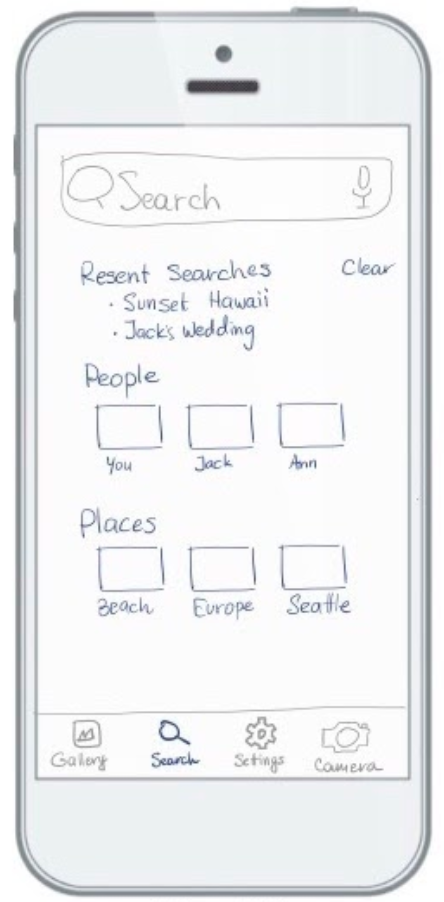 Search
Resent Searches Clear
· Sunset Hawaii
· Jack's Wedding
People
You Jack Ann
Places
Beach Europe Seattle
Gallery Search Settings Camera